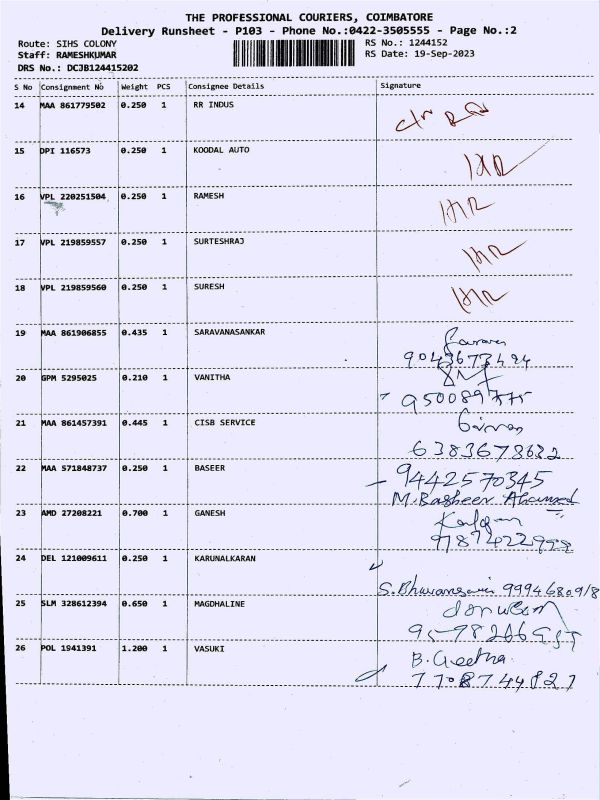 THE PROFESSIONAL COURIERS, COIMBATORE
Delivery Runsheet - P103 - Phone No.:0422-3505555 - Page No.:2
Route: SIHS COLONY RS No.: 1244152
Staff: RAMESHKUMAR RS Date: 19-Sep-2023
DRS No.: DCJB124415202
S No Consignment No Weight PCS Consignee Details Signature
14 MAA 861779502 0.250 1 RR INDUS
15 DPI 116573 0.250 1 KOODAL AUTO
16 VPL 220251504 0.250 1 RAMESH
17 VPL 219859557 0.250 1 SURTESHRAJ
18 VPL 219859560 0.250 1 SURESH
19 MAA 861906855 0.435 1 SARAVANASANKAR
20 GPM 5295025 0.210 1 VANITHA
21 MAA 861457391 0.445 1 CISB SERVICE
6383678632
22 MAA 571848737 0.250 1 BASEER 9442570345
M. Basheer Ahamed
23 AMD 27208221 0.700 1 GANESH
24 DEL 121009611 0.250 1 KARUNALKARAN
25 SLM 328612394 0.650 1 MAGDHALINE
26 POL 1941391 1.200 1 VASUKI B. Geetha
7708744827